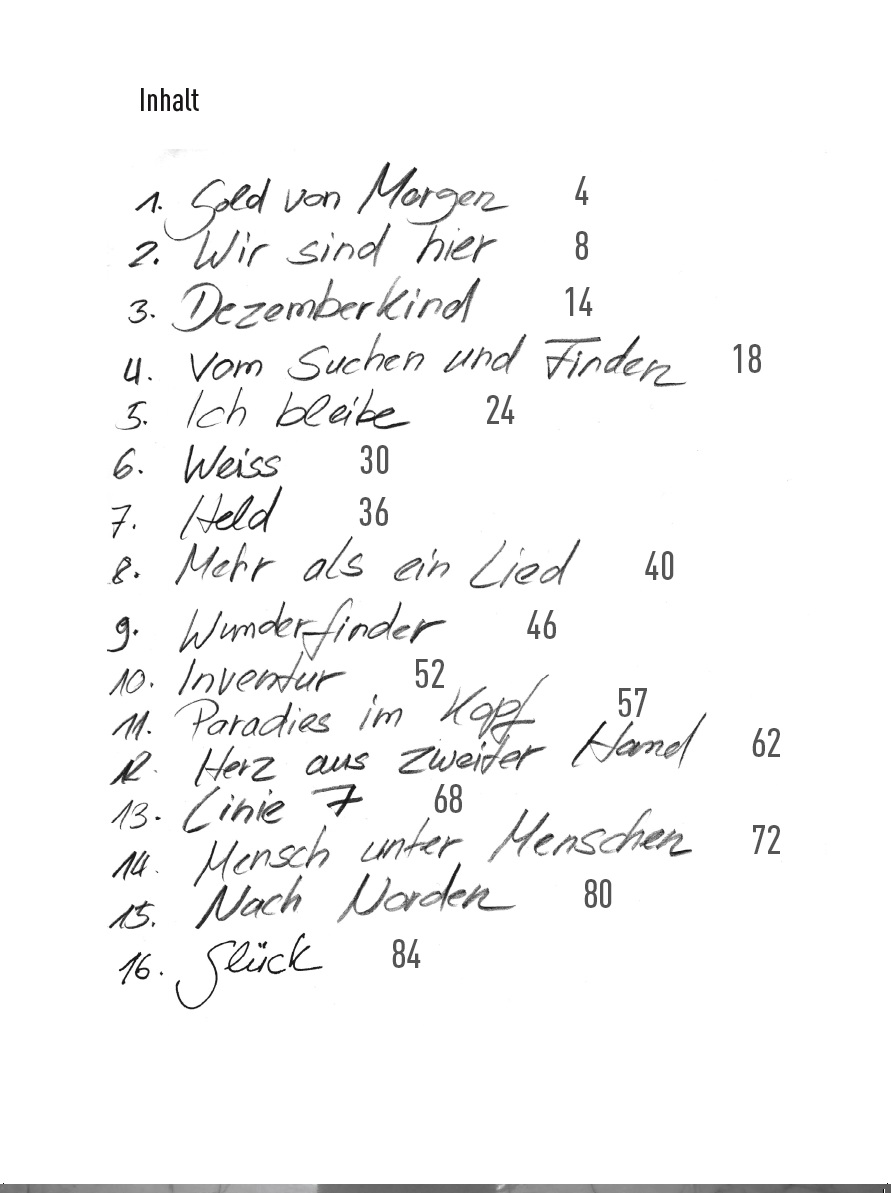 Inhalt
1. Gold von Morgen 4
2. Wir sind hier 8
3. Dezemberkind 14
4. Vom Suchen und Finden 18
5. Ich bleibe 24
6. Weiss 30
7. Held 36
8. Mehr als ein Lied 40
9. Wunderfinder 46
10. Inventur 52
11. Paradies im Kopf 57
12. Herz aus zweiter Hand 62
13. Linie 7 68
14. Mensch unter Menschen 72
15. Nach Norden 80
16. Glück 84